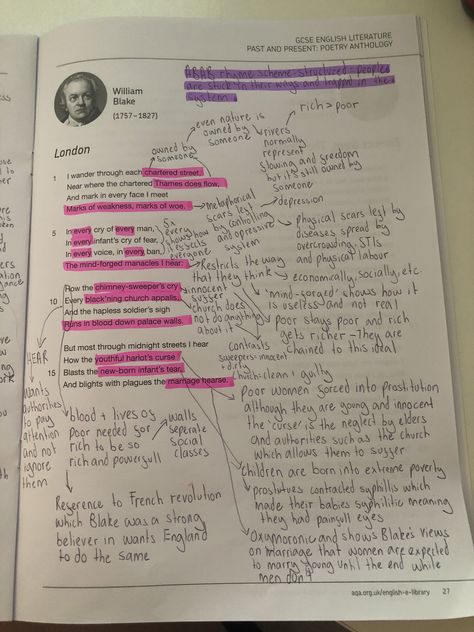 GCSE ENGLISH LITERATURE
PAST AND PRESENT: POETRY ANTHOLOGY
ABAB rhyme scheme - structured - people
are stuck in their ways and trapped in the
system
William
Blake
(1757–1827)
even nature is
owned by
someone
rich > poor
rivers
normally
represent
flowing and freedom
but it's still owned by
someone
owned by
someone
London
1 I wander through each chartered street,
Near where the chartered Thames does flow,
And mark in every face I meet
Marks of weakness, marks of woe.
depression
metaphorical
scars left
by controlling
and opressive
system
physical scars left by
diseases spread by
overcrowding, STIs
and physical labour
5 In every cry of every man,
In every infant's cry of fear,
In every voice, in every ban,
The mind-forged manacles I hear:
5x
every
shows how
it effects
everyone
Restricts the way
that they think
economically, socially, etc.
'mind-forged' shows how it
is useless and not real
How the chimney-sweeper's cry
10 Every black'ning church appalls,
And the hapless soldier's sigh
Runs in blood down palace walls.
innocent
suffer
church does
not do anything
about it
Poor stays poor and rich
gets richer - They are
chained to this ideal
contrasts
sweepers - innocent
+ dirty
church - clean + guilty
But most through midnight streets I hear
How the youthful harlot's curse
15 Blasts the new-born infant's tear,
And blights with plagues the marriage hearse.
HEAR
wants
authorities
to pay
attention
and not
ignore
them
blood + lives of
poor needed for
rich to be so
rich and powerfull
walls
seperate
social
classes
Poor women forced into prostitution
although they are young and innocent
the 'curse' is the neglect by elders
and authorities such as the church
which allows them to suffer
Children are born into extreme poverty
prostitutes contracted syphillis which
made their babies syphilitic meaning
they had painfull eyes
Reference to French revolution
which Blake was a strong
believer in wants England
to do the same
Oxymoronic and shows Blake's views
on marriage that women are expected
to marry young until the end while
men don't
aqa.org.uk/english-e-library
27